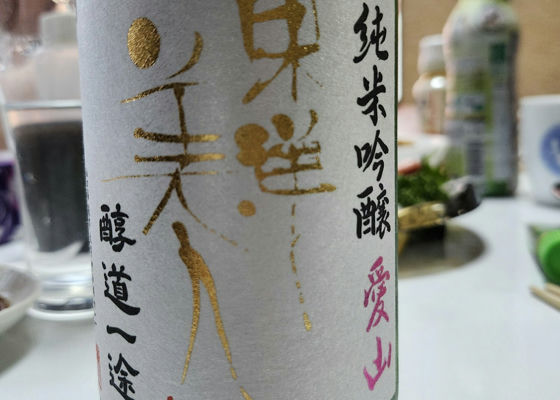 純米吟醸 愛山
東洋
美人
醇道一途